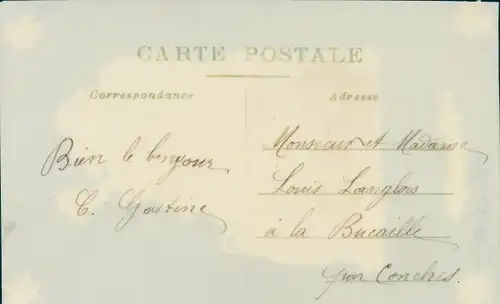 CARTE POSTALE
Correspondance
Adresse
Bien le bonjour
C. Gastine
Monsieur et Madame
Louis Langlois
à la Bucaille
par Conches